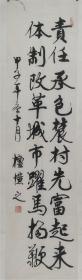 責任承包農村先富起来
体制改革城市躍馬揚鞭
甲子年冬十月